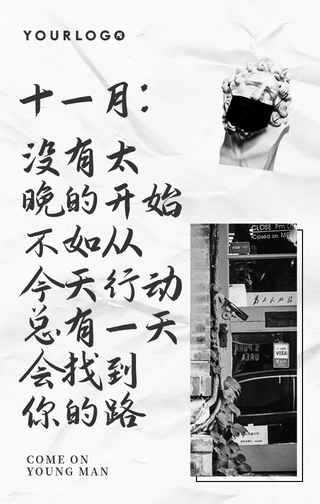 YOURLOGO
十一月：
没有太
晚的开始
不如从
今天行动
总有一天
会找到
你的路
CLOSE Pm
Closed on
为人民服务
VISA
COME ON
YOUNG MAN